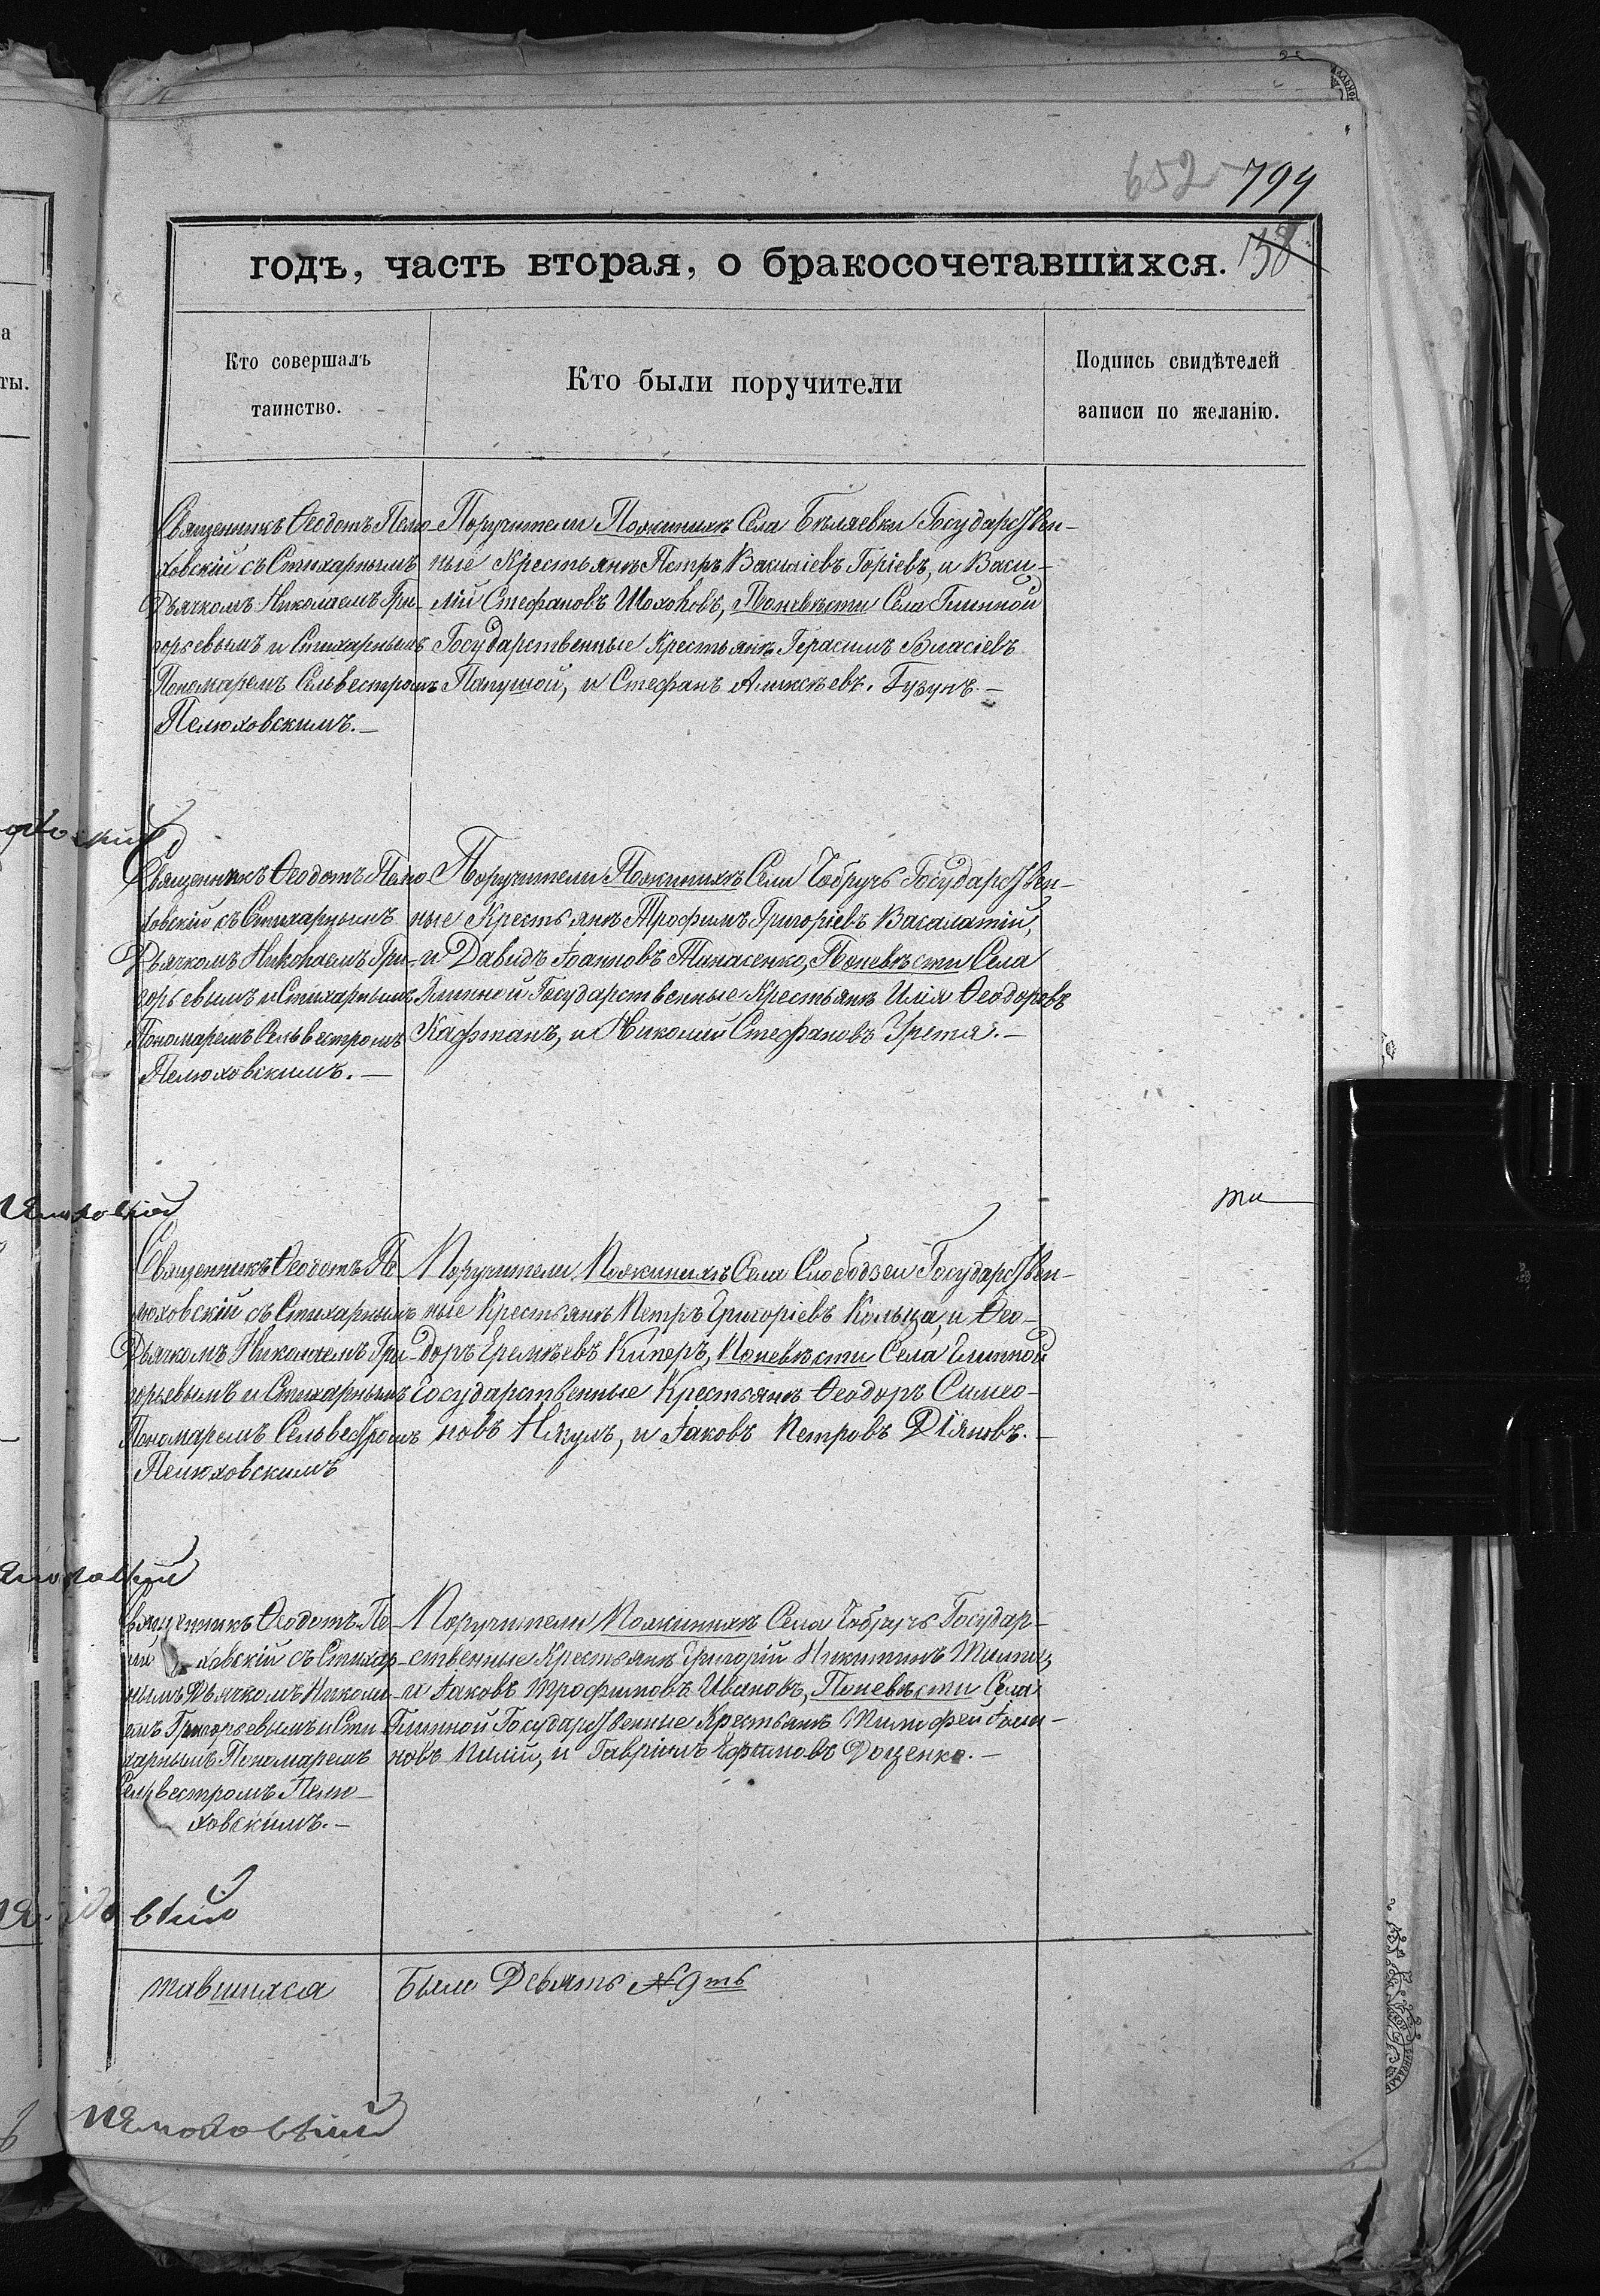 652 794
138
годъ, часть вторая, о бракосочетавшихся.
Кто совершалъ
таинство.
Кто были поручители
Подпись свидѣтелей
записи по желанію.
Священникъ Ѳеодотъ Пелю-
ховскій съ Стихарнымъ
Дьячкомъ Николаемъ Гри-
горьевымъ и Стихарнымъ
Пономаремъ Сельвестромъ
Пелюховскимъ.—
Поручители Пожинихѣ Села Бѣляевки Государствен-
ные Крестьянѣ Петръ Василіевъ Горіевъ, и Васи-
лій Стефановъ Шохоновъ, Поневѣсти Села Глинной
Государственные Крестьянѣ Герасимъ Власіевъ
Папушой, и Стефанъ Аликсѣевъ Гузунъ.—
Священникъ Ѳеодотъ Пелю-
ховскій съ Стихарнымъ
Дьячкомъ Николаемъ Гри-
горьевымъ и Стихарнымъ
Пономаремъ Сельвестромъ
Пелюховскимъ.—
Поручители Пожинихѣ Села Чобручъ Государствен-
ные Крестьянѣ Трофимъ Григоріевъ Васалатій,
и Давидъ Іоанновъ Танасенко, Поневѣсти Села
Глинной Государственные Крестьянѣ Илія Ѳеодоровъ
Кафтанъ, и Николай Стефановъ Третя.—
ти
Священникъ Ѳеодотъ Пе-
люховскій съ Стихарнымъ
Дьячкомъ Николаемъ Гри-
горьевымъ и Стихарнымъ
Пономаремъ Сельвестромъ
Пелюховскимъ
Поручители Пожинихѣ Села Слободзеи Государствен-
ные Крестьянѣ Петръ Григоріевъ Кольца, и Ѳео-
доръ Еремѣевъ Киперъ, Поневѣсти Села Глинной
Государственные Крестьянѣ Ѳеодоръ Симео-
новъ Някулъ, и Іаковъ Петровъ Діяновъ.—
Священникъ Ѳеодотъ Пе-
лю ховскій съ Стихар-
нымъ Дьячкомъ Никола-
емъ Григорьевымъ и Сти-
харнымъ Пономаремъ
Сельвестромъ Пелю-
ховскимъ.—
Поручители Пожинихѣ Села Чобручъ Государ-
ственные Крестьянѣ Григорій Никитинъ
и Іаковъ Трофимовъ Ивановъ, Поневѣсти Села
Глинной Государственные Крестьянѣ Тимофей Іоан-
новъ Пилій, и Гавріилъ Ефимовъ Доценко.—
тавшихся Было Девять №9ть
Пелюховскій